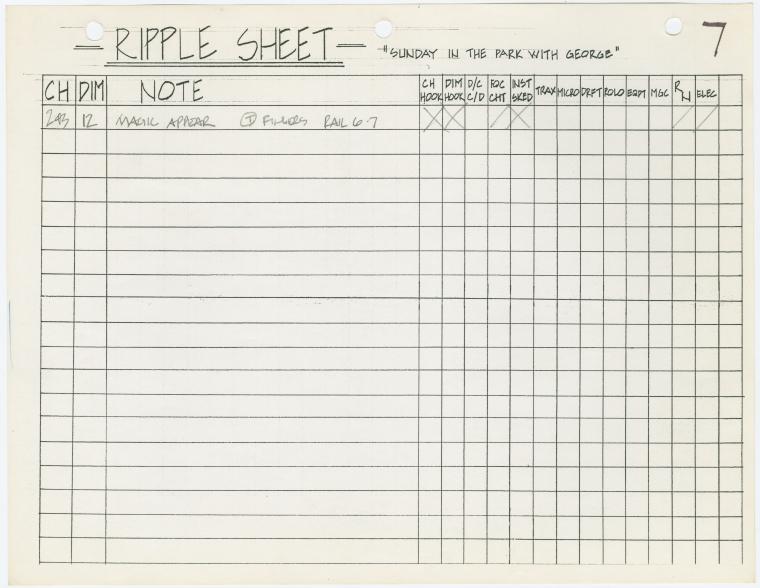 7
RIPPLE SHEET
"SUNDAY IN THE PARK WITH GEORGE"
CH DIM NOTE CH HOOK DIM HOOK D/C C/D FOC CHT INST SKED TRAX MICRO DRFT ROLO EQPT MGC R/N ELEC
243 12 MAGIC APPEAR FINGERS RAIL 6-7 X X / X / /